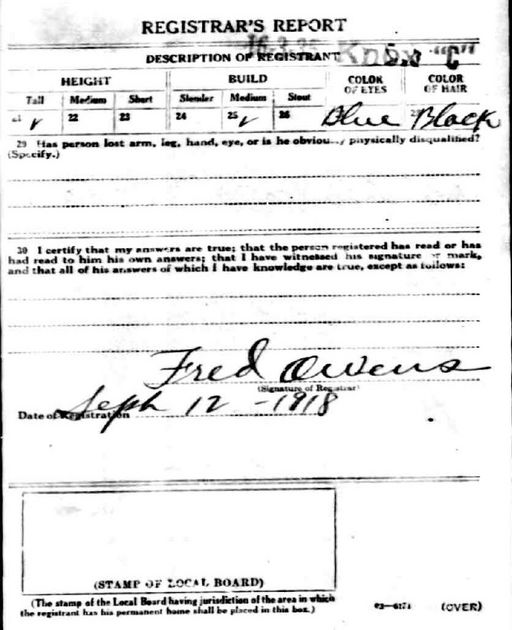 REGISTRAR'S REPORT
Knox "C"
DESCRIPTION OF REGISTRANT
HEIGHT BUILD COLOR OF EYES COLOR OF HAIR
Tall Medium Short Slender Medium Stout
21 ✓ 22 23 24 25 ✓ 26 Blue Black
29 Has person lost arm, leg, hand, eye, or is he obviously physically disqualified?
(Specify.)
30 I certify that my answers are true; that the person registered has read or has
had read to him his own answers; that I have witnessed his signature or mark,
and that all of his answers of which I have knowledge are true, except as follows:
Fred Owens
(Signature of Registrar)
Date of Registration Seph 12 - 1918
(STAMP OF LOCAL BOARD)
(The stamp of the Local Board having jurisdiction of the area in which
the registrant has his permanent home shall be placed in this box.)
03-6171 (OVER)